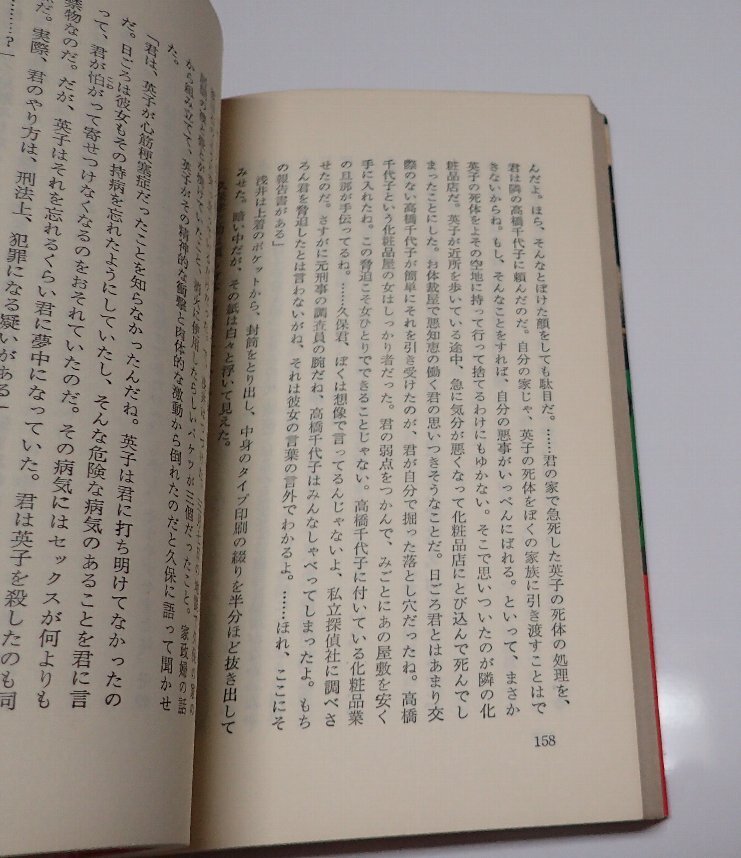 んだよ。ほら、そんなとぼけた顔をしても駄目だ。……君の家で急死した英子の死体の処理を、
君は隣の高橋千代子に頼んだのだ。自分の家じゃ、英子の死体をぼくの家族に引き渡すことはで
きないからね。もし、そんなことをすれば、自分の悪事がいっぺんにばれる。といって、まさか
英子の死体をよその空地に持って行って捨てるわけにもゆかない。そこで思いついたのが隣の化
粧品店だ。英子が近所を歩いている途中、急に気分が悪くなって化粧品店にとび込んで死んでし
まったことにした。お体裁屋で悪知恵の働く君の思いつきそうなことだ。日ごろ君とはあまり交
際のない高橋千代子が簡単にそれを引き受けたのが、君が自分で掘った落とし穴だったね。高橋
千代子という化粧品屋の女はしっかり者だった。君の弱点をつかんで、みごとにあの屋敷を安く
手に入れたね。この脅迫こそ女ひとりでできることじゃない。高橋千代子に付いている化粧品業
の旦那が手伝ってるね。……久保君、ぼくは想像で言ってるんじゃないよ、私立探偵社に調べさ
せたのだ。さすがに元刑事の調査員の腕だね、高橋千代子はみんなしゃべってしまったよ。もち
ろん君を脅迫したとは言わないがね、それは彼女の言葉の言外でわかるよ。……ほれ、ここにそ
の報告書がある」
浅井は上着のポケットから、封筒をとり出し、中身のタイプ印刷の綴りを半分ほど抜き出して
みせた。暗い中だが、その紙は白々と浮いて見えた。
158
バケツが三個だったこと。家政婦の話
から組み立てて、英子がその精神的な衝撃と肉体的な激動から倒れたのだと久保に語って聞かせ
た。
「君は、英子が心筋梗塞症だったことを知らなかったんだね。英子は君に打ち明けてなかったの
だ。日ごろは彼女もその持病を忘れたようにしていたし、そんな危険な病気のあることを君に言
って、君が怕がって寄せつけなくなるのをおそれていたのだ。その病気にはセックスが何よりも
禁物なのだ。だが、英子はそれを忘れるくらい君に夢中になっていた。君は英子を殺したのも同
だ。実際、君のやり方は、刑法上、犯罪になる疑いがある」
……？」